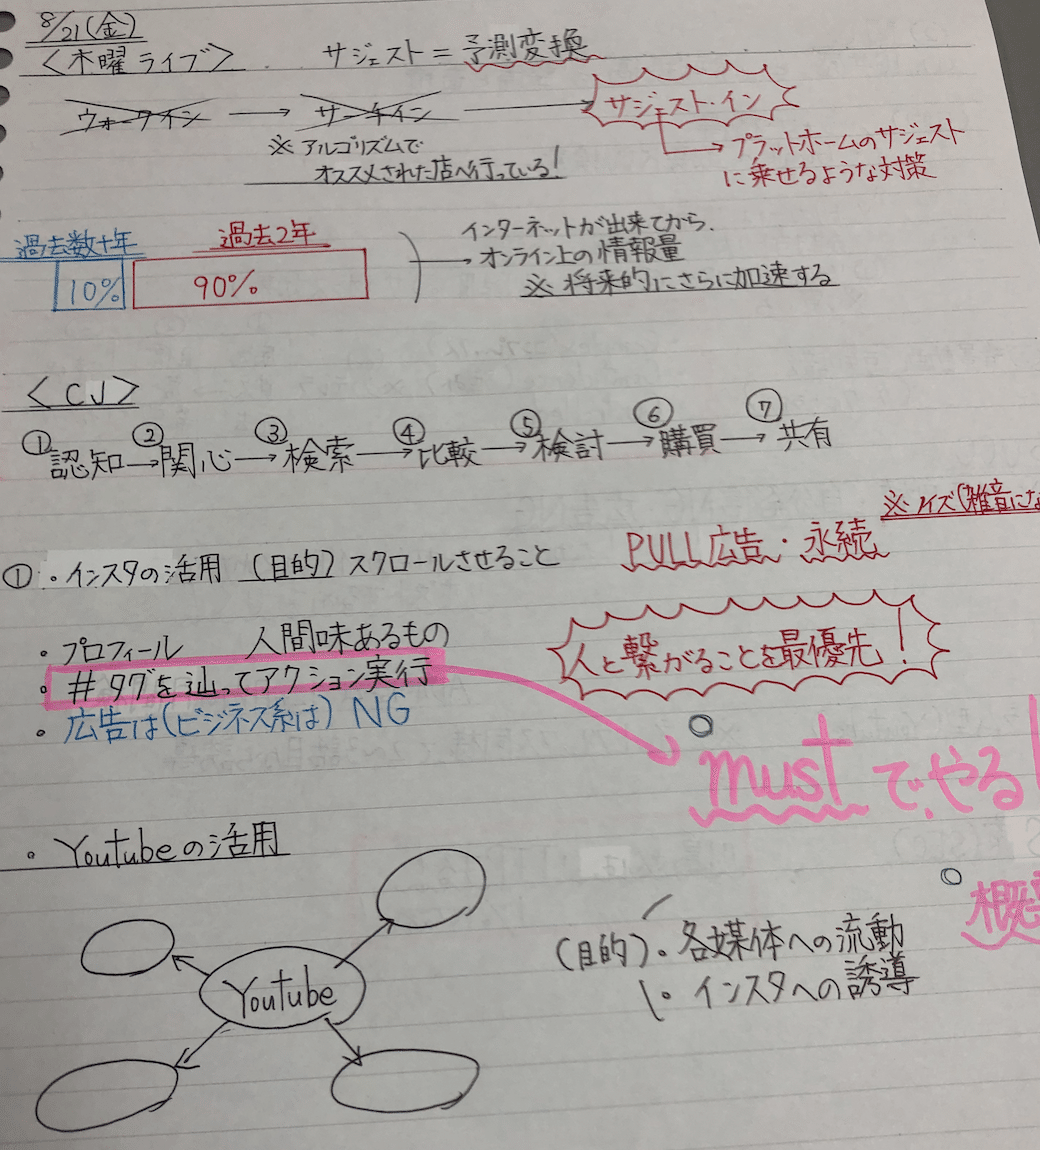 8/21(金)
<木曜ライブ> サジェスト=予測変換
ウォークイン → サーチイン → サジェスト・イン
※アルゴリズムで
オススメされた店へ行っている!
→プラットホームのサジェスト
に乗せるような対策
過去数十年 過去2年
10% 90%
インターネットが出来てから、
→オンライン上の情報量
※将来的にさらに加速する
<CJ>
① ② ③ ④ ⑤ ⑥ ⑦
認知→関心→検索→比較→検討→購買→共有
※ノイズ(雑音にな
PULL広告・永続
①・インスタの活用 (目的)スクロールさせること
・プロフィール 人間味あるもの
人と繋がることを最優先!
・#タグを辿ってアクション実行
・広告は(ビジネス系は)NG
mustでやる!
・Youtubeの活用
Youtube
(目的)・各媒体への流動
・インスタへの誘導
概